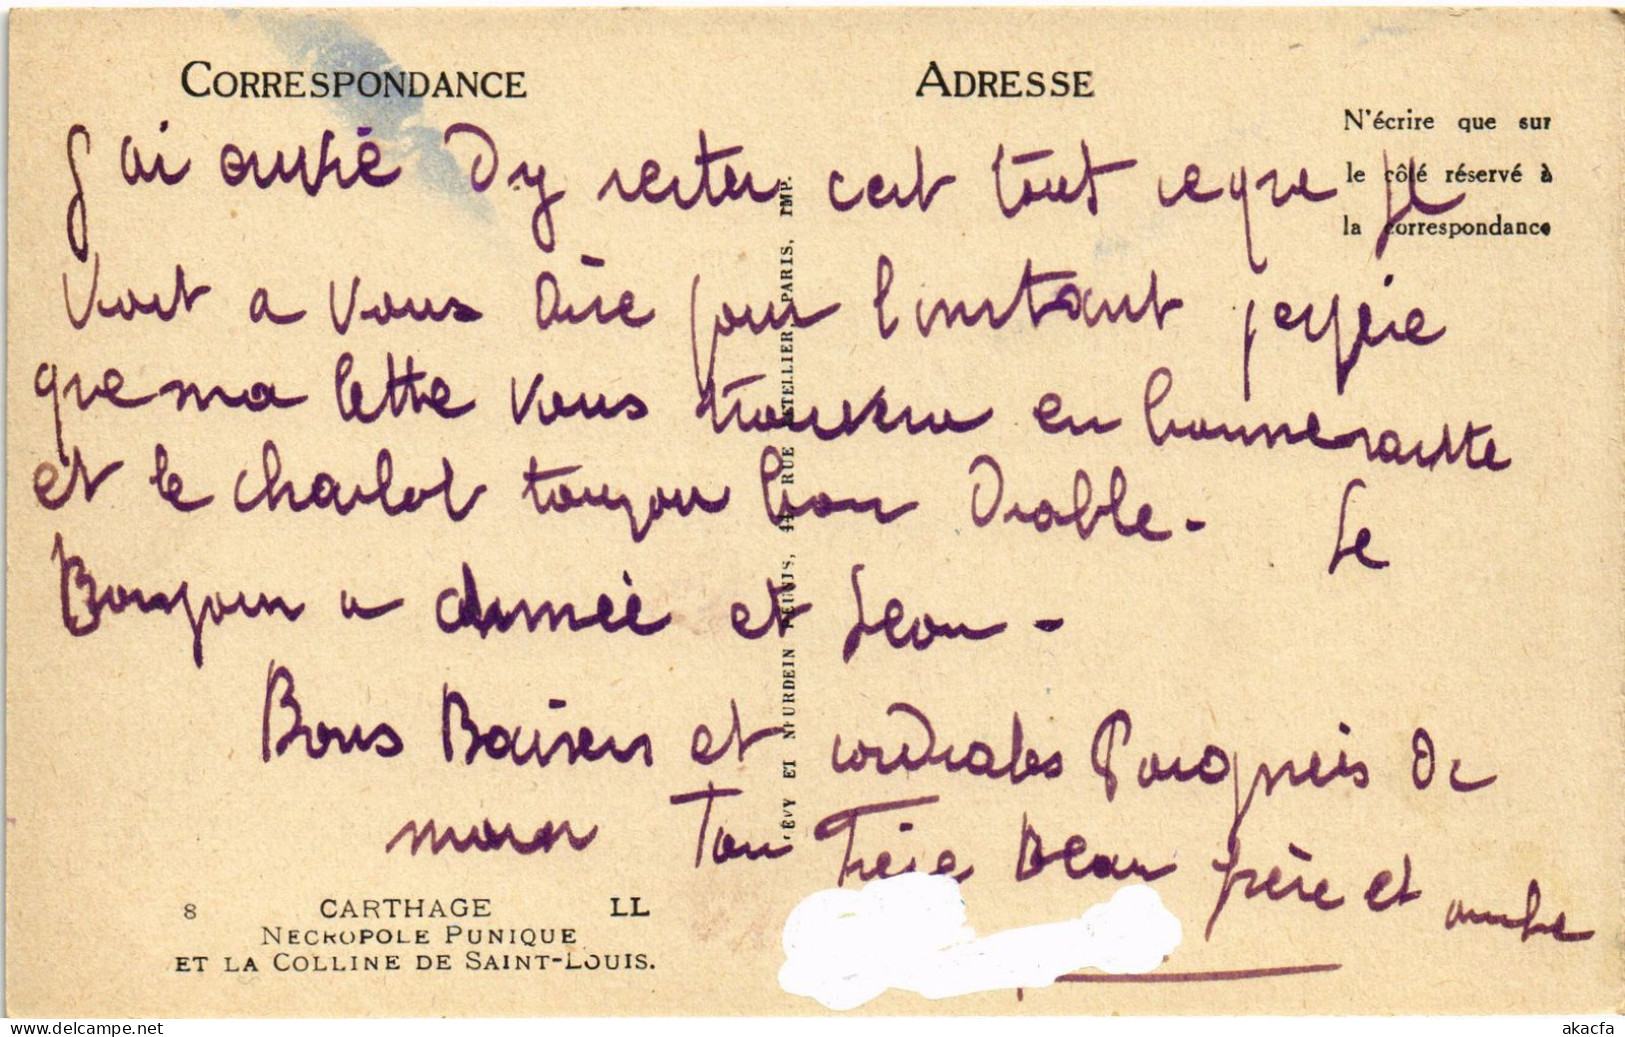 CORRESPONDANCE
ADRESSE
N'écrire que sur
le côté réservé à
la correspondance
j'ai ouvré d'y rester cest tout ceque je
voit a vous dire pour linstant jespère
que ma lette vous trouvera en bonne sante
et le charlot toujour bon Diable. Le
Bonjour a Aimée et Leon -
Bons Baisers et cordiales Poigneis de
main Ton Frère Beau frère et oncle
LÉVY ET NEURDEIN RÉUNIS, 44, RUE LETELLIER, PARIS, IMP.
8 CARTHAGE LL
NECROPOLE PUNIQUE
ET LA COLLINE DE SAINT-LOUIS.
www.delcampe.net
akacfa